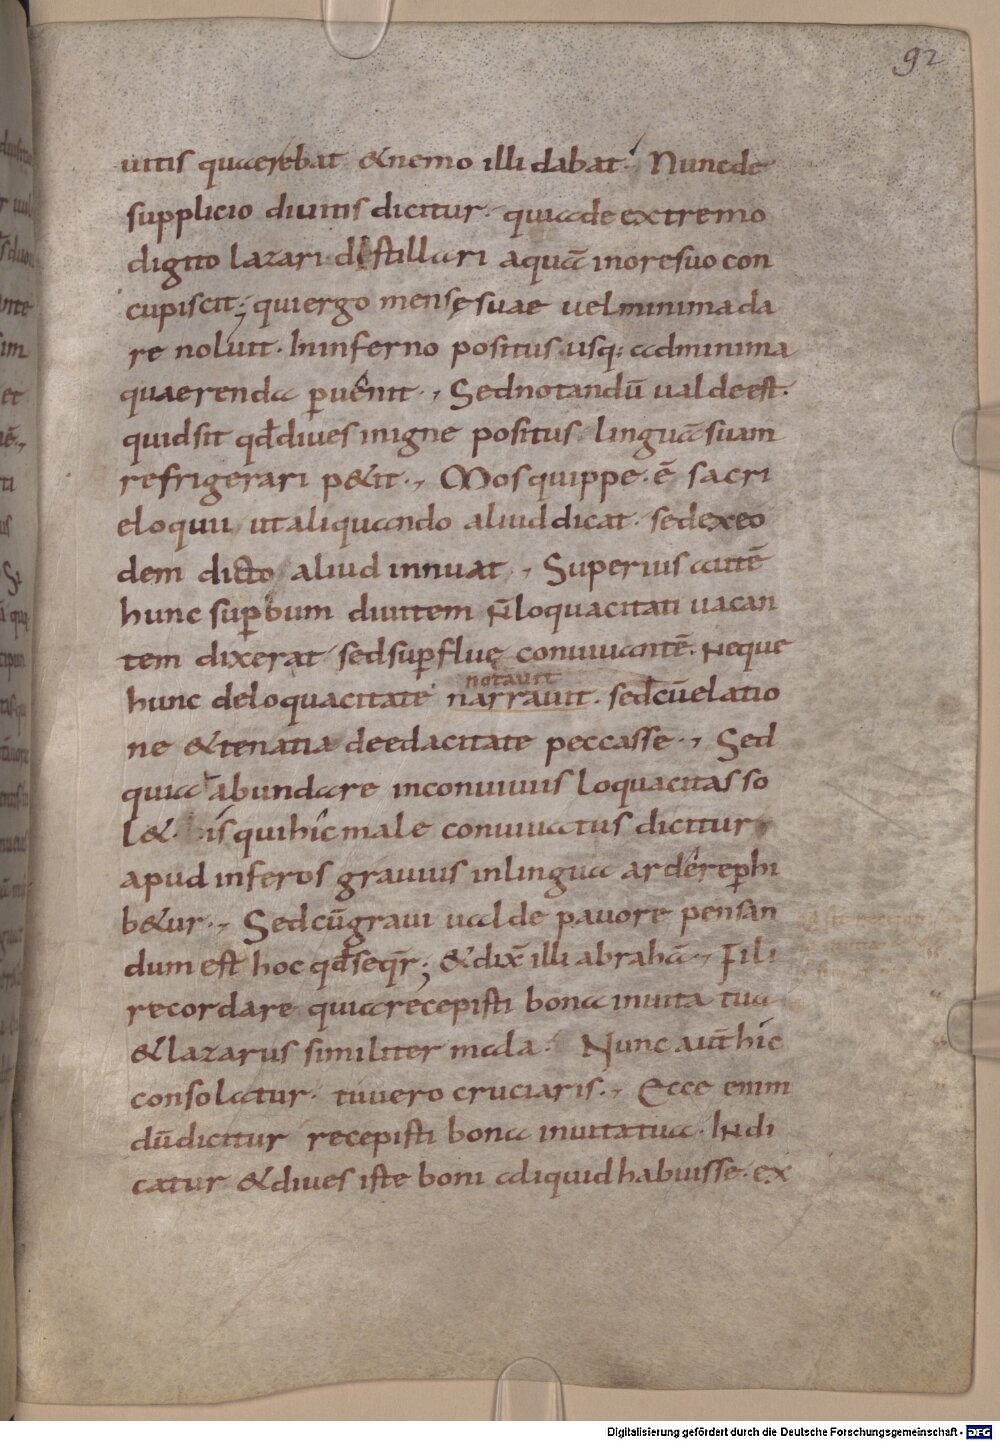 92
uitis quaerebat &nemo illi dabat. Nuncde
supplicio diuitis dicitur. quiade extremo
digito lazari distillari aquā inoresuo con
cupiscit; quiergo mensęsuae uelminimada
re noluit. Ininferno positus usq: adminima
quaerenda ꝑuenit., Sednotandū ualdeest.
quidsit qđdiues inigne positus linguāsuam
refrigerari p&it., Mosquippe.ē sacri
eloquii utaliquando aliuddicat. sedexeo
dem dicto aliud innuat., Superius autē
hunc suꝑbum diuitem n̄loquacitati uacan
tem dixerat sedsuꝑfluę conuiuantē. Neque
notauit
hunc deloquacitate narrauit. sedcūelatio
ne &tenatia deedacitate peccasse., Sed
quia abundare inconuiuiis loquacitas so
l&. is quihic male conuiuatus dicitur
apud inferos grauius inlingua arderepꝑhi
b&ur., Sedcūgraui ualde pauore pensan
dum est hoc qđseqr̄; &dix̄ illi abrahā., Fili
recordare quiarecepisti bona inuita tua
&lazarus similiter mala. Nunc aut̄hic
consolatur. tuuero cruciaris., Ecce enim
dūdicitur recepisti bona inuitatua. Indi
catur &diues iste boni aliquidhabuisse. ex
Digitalisierung gefördert durch die Deutsche Forschungsgemeinschaft - DFG